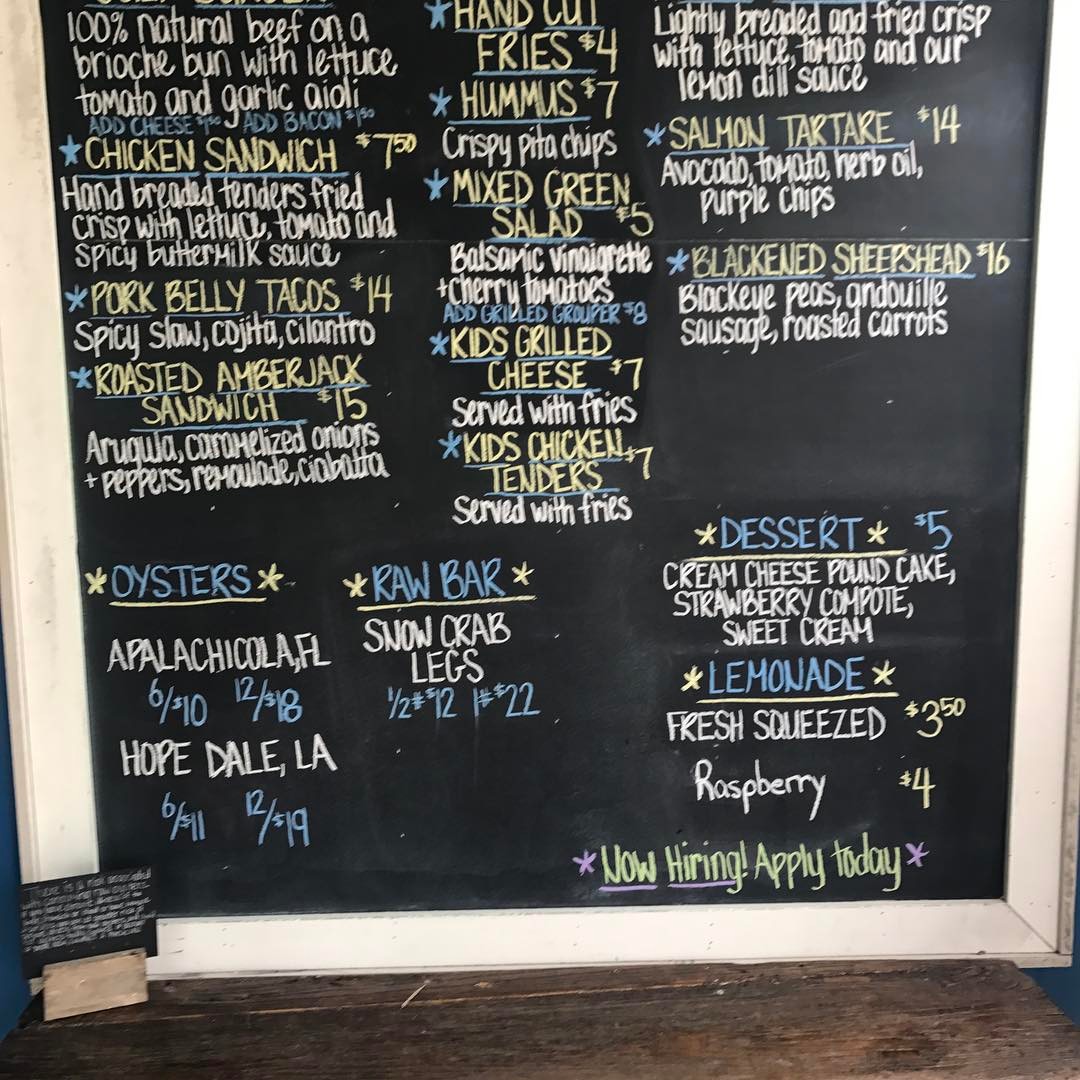 100% natural beef on a
brioche bun with lettuce
tomato and garlic aioli
ADD CHEESE $1.50 ADD BACON $1.50
*CHICKEN SANDWICH $7.50
Hand breaded tenders fried
crisp with lettuce, tomato and
spicy buttermilk sauce
*PORK BELLY TACOS $14
Spicy slaw, cojita, cilantro
*ROASTED AMBERJACK
SANDWICH $15
Arugula, caramelized onions
+ peppers, remoulade, ciabatta
*HAND CUT
FRIES $4
*HUMMUS $7
Crispy pita chips
*MIXED GREEN
SALAD $5
Balsamic vinaigrette
+cherry tomatoes
ADD GRILLED GROUPER $8
*KIDS GRILLED
CHEESE $7
Served with fries
*KIDS CHICKEN $7
TENDERS
Served with fries
Lightly breaded and fried crisp
with lettuce, tomato and our
lemon dill sauce
*SALMON TARTARE $14
Avocado, tomato, herb oil,
purple chips
*BLACKENED SHEEPSHEAD $16
Blackeye peas, andouille
sausage, roasted carrots
*OYSTERS*
APALACHICOLA, FL
6/$10 12/$18
HOPE DALE, LA
6/$11 12/$19
*RAW BAR*
SNOW CRAB
LEGS
1/2# $12 1# $22
*DESSERT* $5
CREAM CHEESE POUND CAKE,
STRAWBERRY COMPOTE,
SWEET CREAM
*LEMONADE*
FRESH SQUEEZED $3.50
Raspberry $4
*Now Hiring! Apply today*